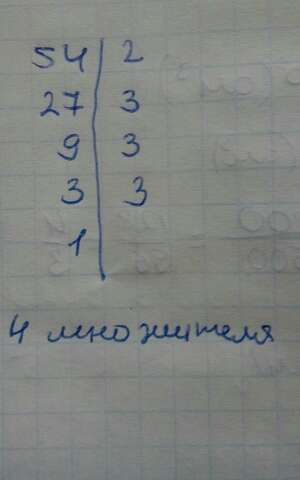 54 | 2
27 | 3
9 | 3
3 | 3
1 |
4 множителя